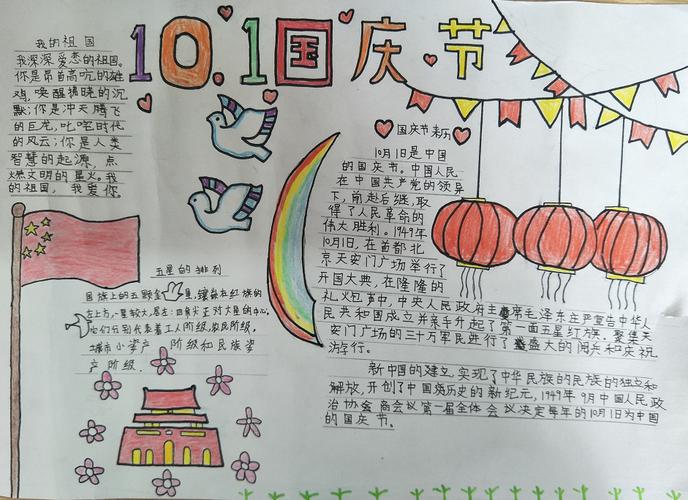 10.1国庆节
我的祖国
我深深爱恋的祖国。
你是昂首高吭的雄
鸡，唤醒拂晓的沉
默；你是冲天腾飞
的巨龙，叱咤时代
的风云；你是人类
智慧的起源，点
燃文明的星火。我
的祖国，我爱你。
五星的排列
国旗上的五颗金星，镶嵌在红旗的
左上方，一星较大，居左；四角尖正对大星的中心。
它们分别代表着工人阶级，农民阶级，
城市小资产阶级和民族资
产阶级．
国庆节来历
10月1日是中国
的国庆节。中国人民
在中国共产党的领导
下，前赴后继，取
得了人民革命的
伟大胜利。1949年
10月1日，在首都北
京天安门广场举行了
开国大典，在隆隆的
礼火包声中，中央人民政府主席毛泽东庄严宣告中华人
民共和国成立并亲手升起了第一面五星红旗。聚集天
安门广场的三十万军民进行了盛大的阅兵和庆祝
游行。
新中国的建立，实现了中华民族的民族的独立和
解放，开创了中国历史的新纪元，1949年9月中国人民政
治协会商会议第一届全体会议决定每年的10月1日为中国
的国庆节．